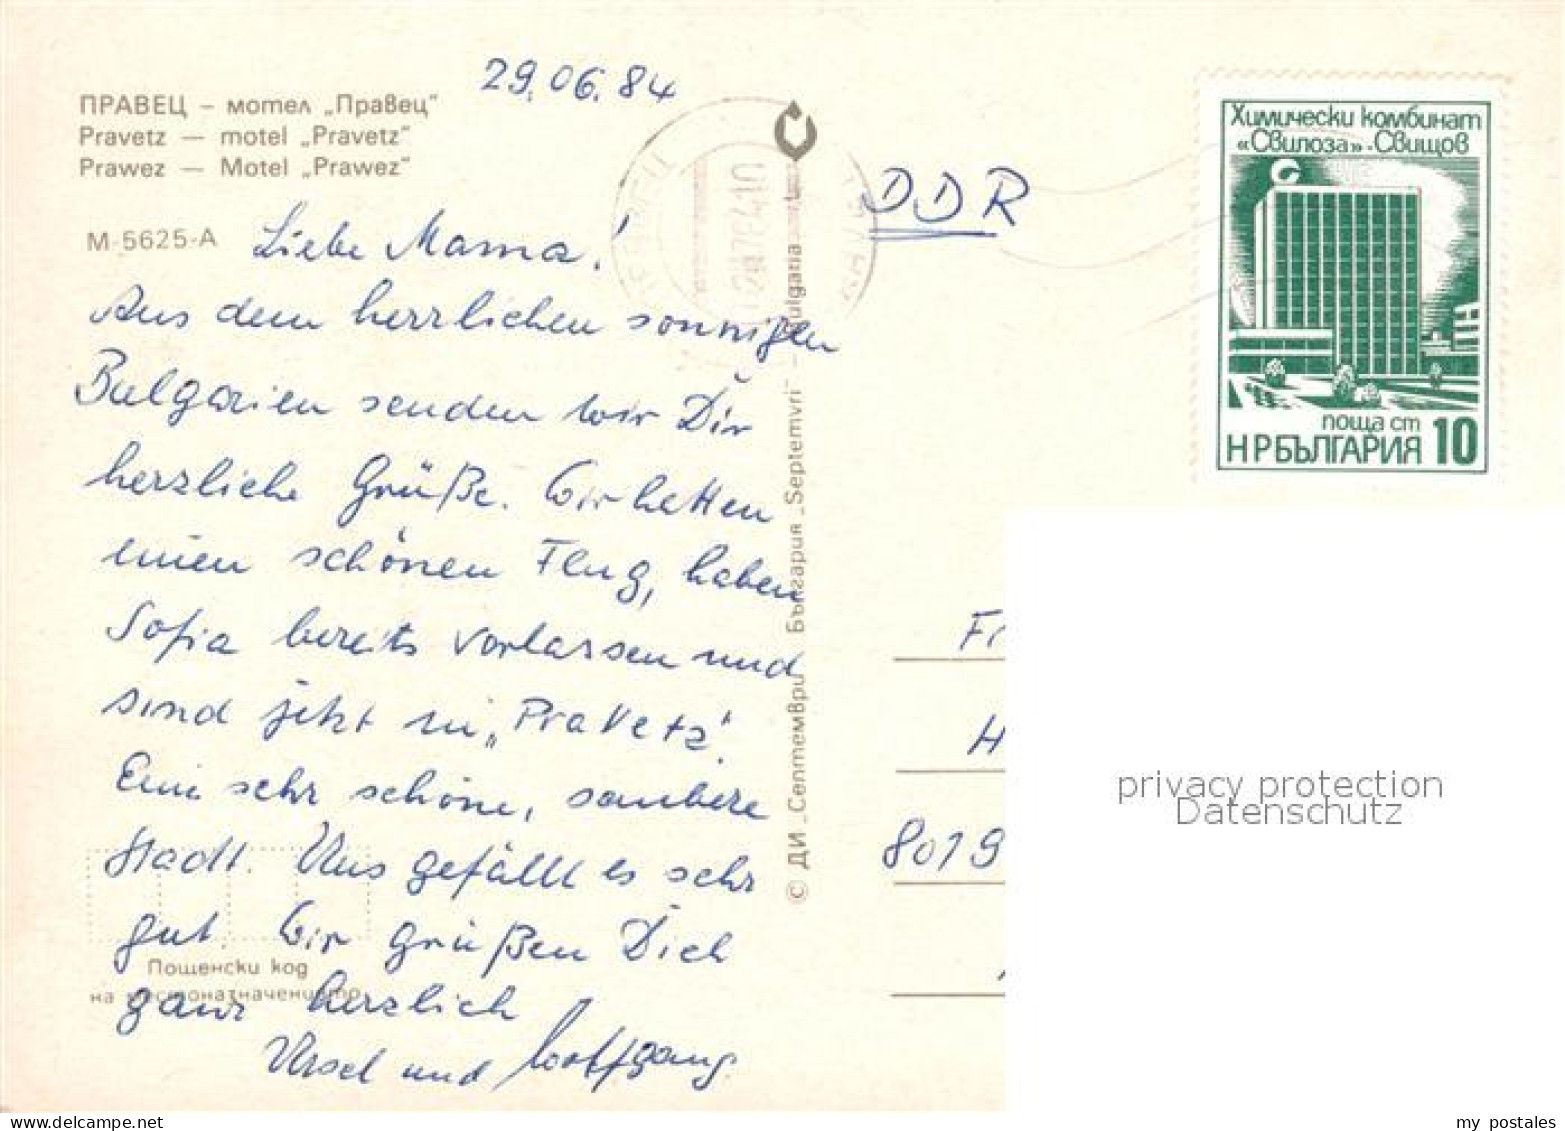 29.06.84
ПРАВЕЦ – мотел „Правец“
Pravetz — motel „Pravetz“
Prawez — Motel „Prawez“
М-5625-А
Liebe Mama!
Aus dem herrlichen sonnigen
Bulgarien senden wir Dir
herzliche Grüße. Wir hatten
einen schönen Flug, haben
Sofia bereits verlassen und
sind jetzt in „Pravetz“.
Eine sehr schöne, saubere
Stadt. Uns gefällt es sehr
gut. Wir grüßen Dich
ganz herzlich
Ursel und Wolfgang.
Пощенски код
на местоназначението
© ДИ „Септември“ България „Septemvri“ – Bulgaria
DDR
Химически комбинат
«Свилоза»-Свищов
поща ст
НРБЪЛГАРИЯ 10
Fr
H
8019
privacy protection
Datenschutz
my postales